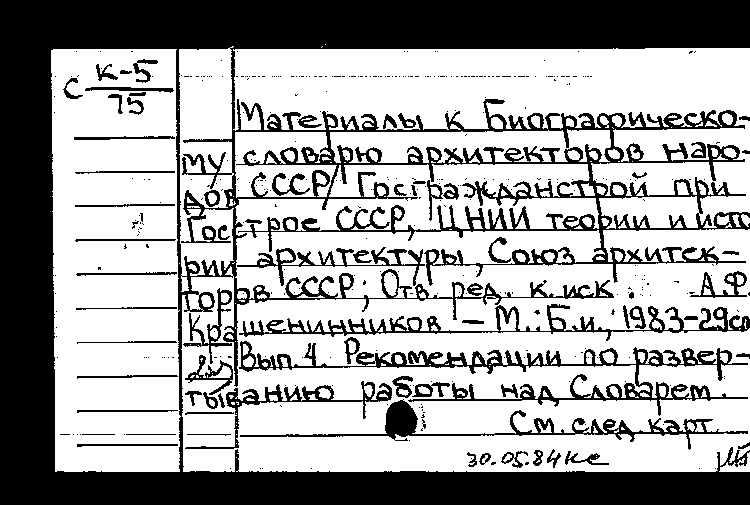 С К-5
75
Материалы к Биографическо-
му словарю архитекторов наро-
дов СССР/ Госгражданстрой при
Госстрое СССР, ЦНИИ теории и исто
рии архитектуры, Союз архитек-
торов СССР; Отв. ред. к. иск. А.Ф.
Крашенинников — М.: Б.и., 1983-29см
Вып. 4. Рекомендации по развер-
тыванию работы над Словарем.
См. след. карт.
30.05.84 кс